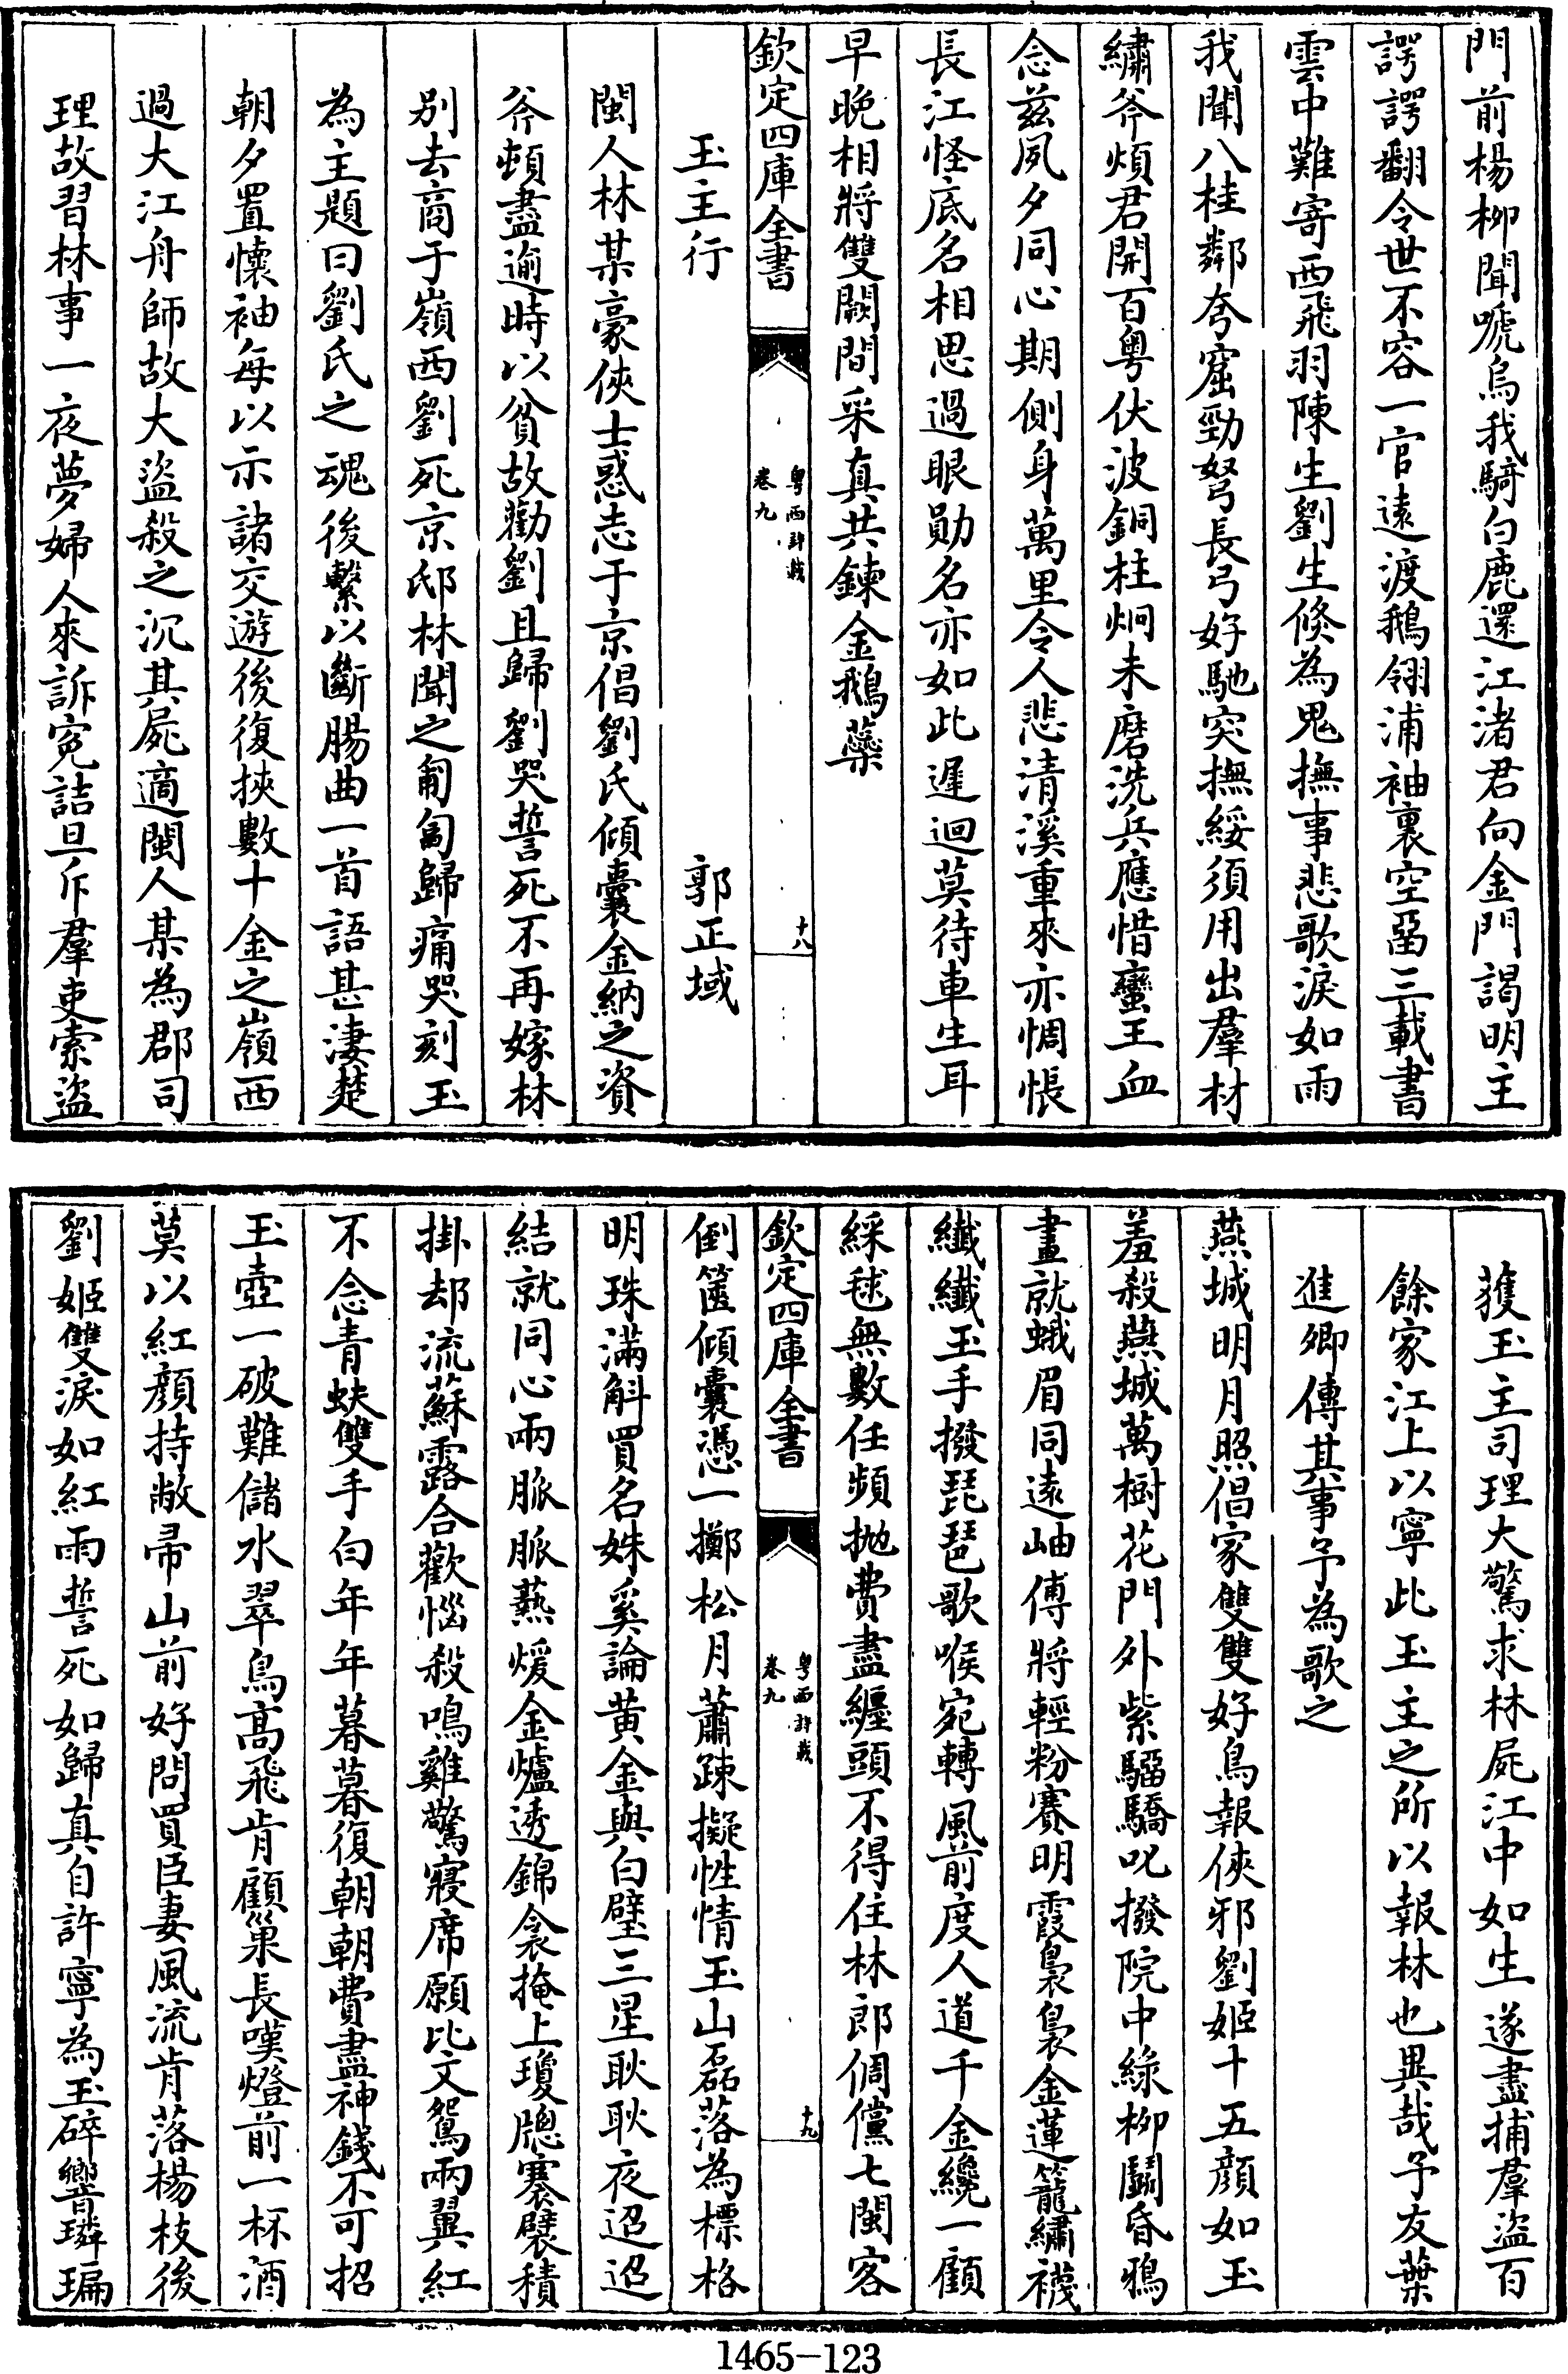 門前楊柳聞唬烏我騎白鹿還江渚君向金門謁明主
諤諤翻令世不容一官遠渡鵝翎浦袖裏空函三載書
雲中難寄西飛羽陳生劉生倏為鬼撫事悲歌淚如雨
我聞八桂鄰夸窟勁弩長弓好馳突撫綏須用出羣材
繡斧煩君開百粤伏波銅柱炯未磨洗兵應惜蠻王血
念兹夙夕同心期側身萬里令人悲清溪重來亦惆悵
長江怪底名相思過眼勛名亦如此遲迴莫待車生耳
早晚相將雙闕間采真共鍊金鵝藥
欽定四庫全書
粤西詩載
卷九
十八
玉主行
郭正域
閩人林某豪俠士惑志于京倡劉氏傾囊金納之資
斧頓盡逾時以貧故勸劉且歸劉哭誓死不再嫁林
别去商于嶺西劉死京邸林聞之匍匐歸痛哭刻玉
為主題曰劉氏之魂後繫以斷腸曲一首語甚淒楚
朝夕置懷袖每以示諸交遊後復挾數十金之嶺西
過大江舟師故大盜殺之沉其屍適閩人某為郡司
理故習林事一夜夢婦人來訴寃詰旦斥羣吏索盜
獲玉主司理大驚求林屍江中如生遂盡捕羣盜百
餘家江上以寧此玉主之所以報林也異哉予友葉
進卿傳其事予為歌之
燕城明月照倡家雙雙好鳥報俠邪劉姬十五顔如玉
羞殺燕城萬樹花門外紫騮驕叱撥院中綠柳鬭昏鴉
畫就蛾眉同遠岫傅將輕粉賽明霞裊裊金蓮籠繡襪
纖纖玉手撥琵琶歌喉宛轉風前度人道千金纔一顧
綵毬無數任頻拋費盡纏頭不得住林郎倜儻七閩客
欽定四庫全書
粤西詩載
卷九
十九
倒篋傾囊憑一擲松月蕭疎擬性情玉山磊落為標格
明珠滿斛買名姝奚論黄金與白璧三星耿耿夜迢迢
結就同心兩脈脈爇煖金爐透錦衾掩上瓊牕褰襞積
掛却流蘇露合歡惱殺鳴雞驚寢席願比文鴛兩翼紅
不念青蚨雙手白年年暮暮復朝朝費盡神錢不可招
玉壺一破難儲水翠鳥高飛肯顧巢長嘆燈前一杯酒
莫以紅顔持敝帚山前好問買臣妻風流肯落楊枝後
劉姬雙淚如紅雨誓死如歸真自許寧為玉碎響璘㻞
1465-123